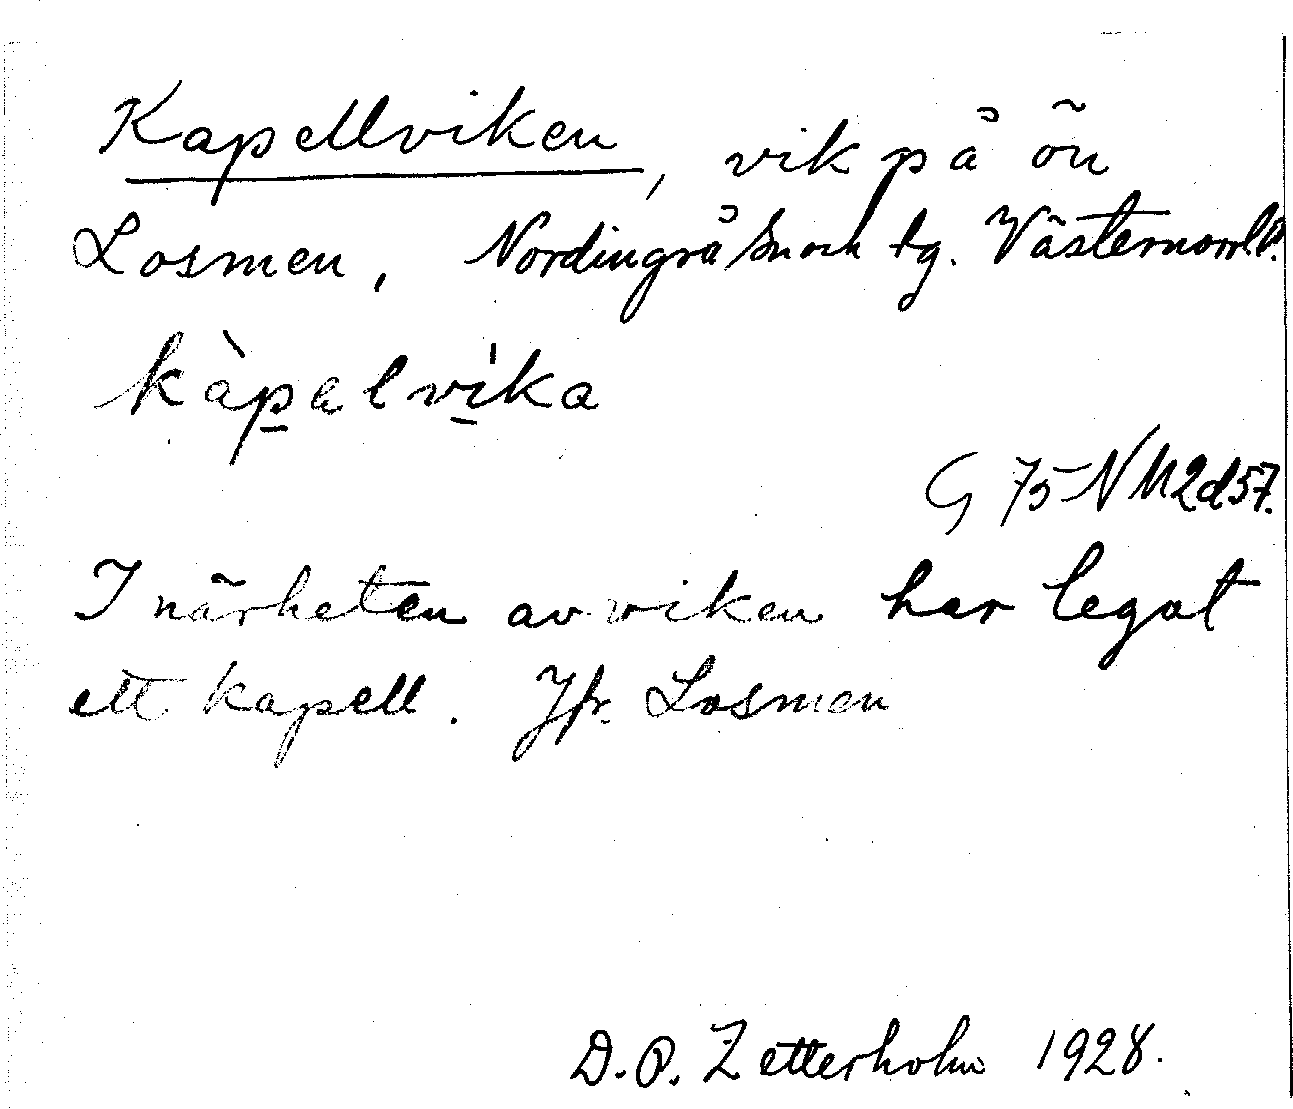 Kapellviken, vik på ön
Losmen, Nordingrå sn och tg. Västernorrl. l.
kàpalvika
G 75 NM2d57.
I närheten av viken har legat
ett kapell. Jfr. Losmen
D.O. Zetterholm 1928.